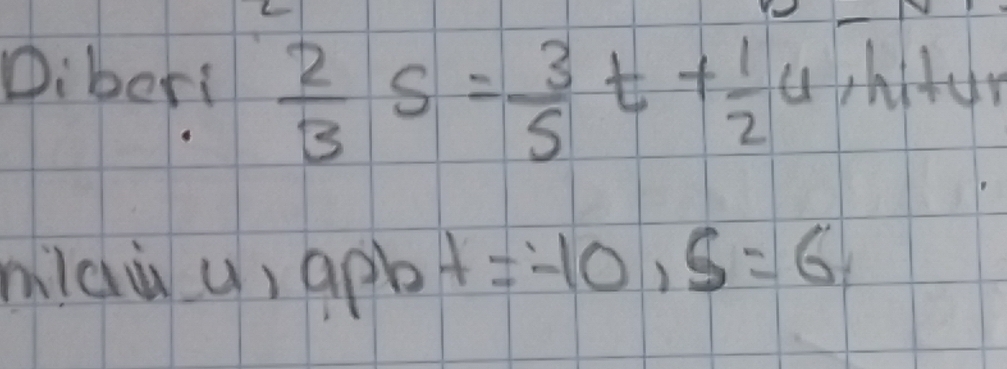 Diberi 2/3 s = 3/5 t + 1/2 u, hitun
nilai u, apb t = -10, s = 6